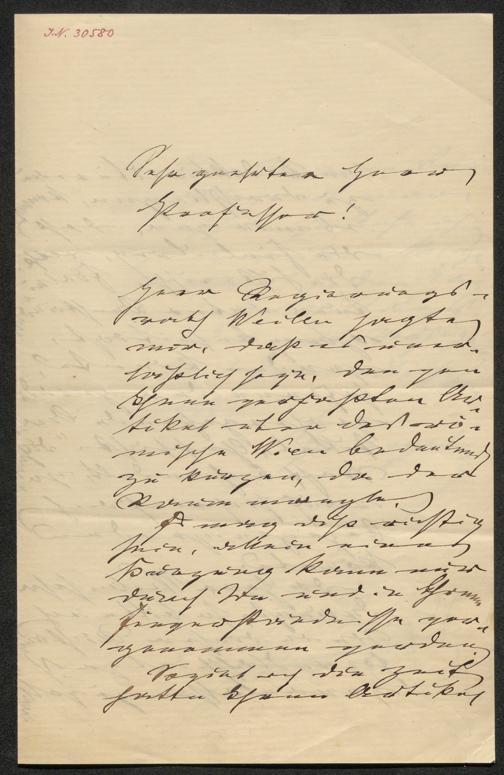 J.N. 30580
Sehr geehrter Herr
Professor!
Herr Regierungs-
rath Weilen sagte
mir, daß es uner-
läßlich seye, den von
Ihnen verfaßten Ar-
tikel über das rö-
mische Wien bedeutend
zu kürzen, da der
Raum mangle.
Es mag dieß richtig
sein, allein eine
Kürzung kann nur
durch Sie und in Ihrem
Einverständnisse vor-
genommen werden.
Soviel ich die Zeit
hatte Ihren Artikel